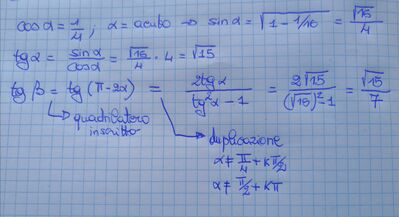 cos α = 1/4 ; α = acuto → sin α = √(1 - 1/16) = √15/4
tg α = sin α/cos α = √15/4 · 4 = √15
tg β = tg (π - 2α) = 2tg α/(tg²α - 1) = 2√15/((√15)² - 1) = √15/7
↳ quadrilatero
inscritto
↳ duplicazione
α ≠ π/4 + K π/2
α ≠ π/2 + Kπ